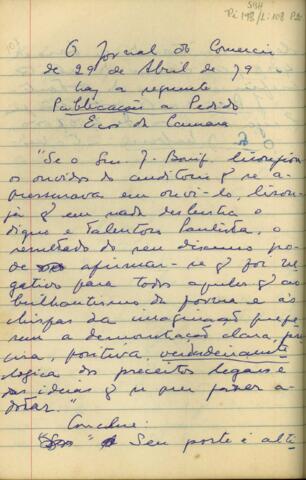 SBH
Pi 198 P2
O Jornal do Comercio
de 29 de Abril de 79
traz a seguinte
Publicação a Pedido
Ecos da Camara
"Se o Snr. J. Bonif.
os ouvidos do auditorio q se
em ouvi-lo,
q em nada deslustra o
digno e talentoso Paulista, o
resultado do seu discurso po-
de afirmar-se q foi ne
gativo para todos aqueles q ao
brilhantismo da forma e ás
chispas da imaginação prefe
rem a demonstração clara, pre
cisa, positiva, verdadeiramente
logica dos preceitos legais e
das ideias q se quer fazer a-
dotar."
Conclue:
" Seu porte é alti